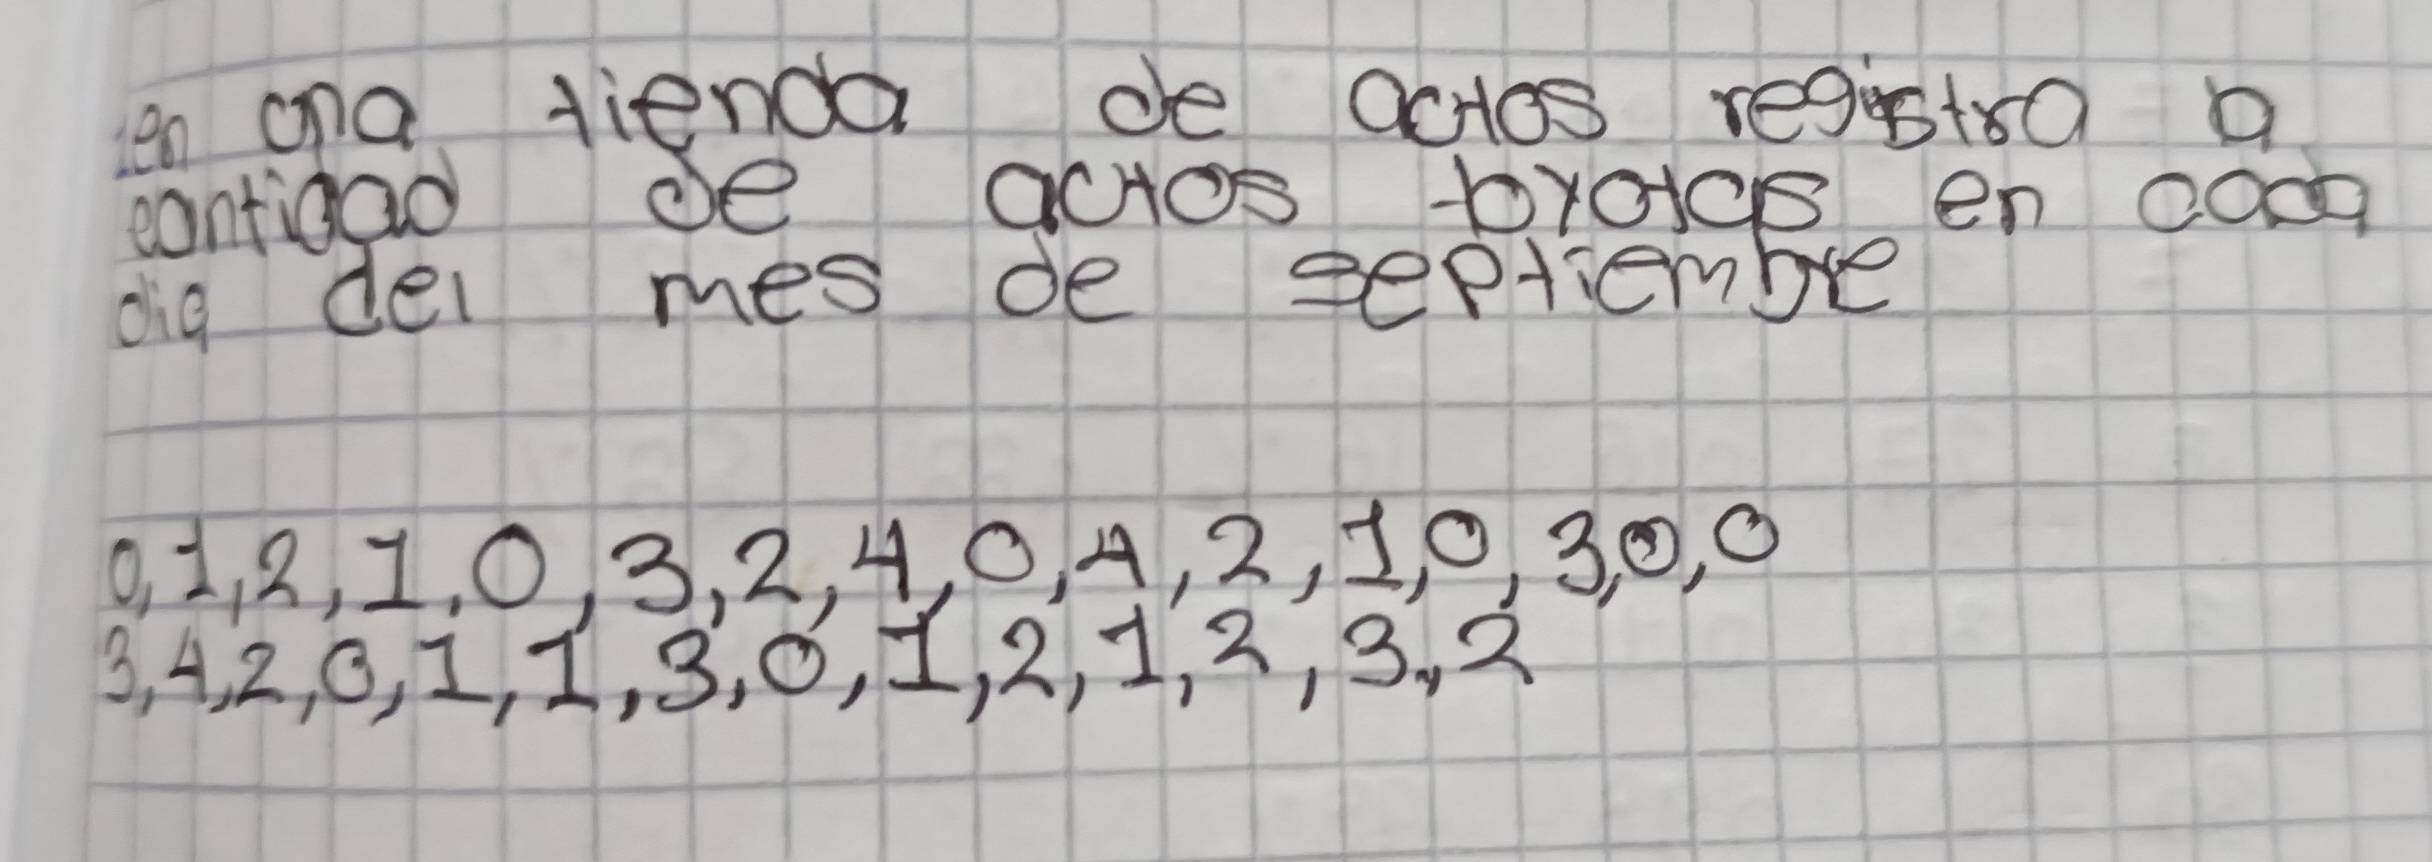 en una tienda de actos registro a
cantidad de actos brotos en cada
dia del mes de septiembre
0,1,2,1,0,3,2,4,0,4,2,1,0,3,0,0
3,4,2,0,1,1,3,0,1,2,1,2,3,2